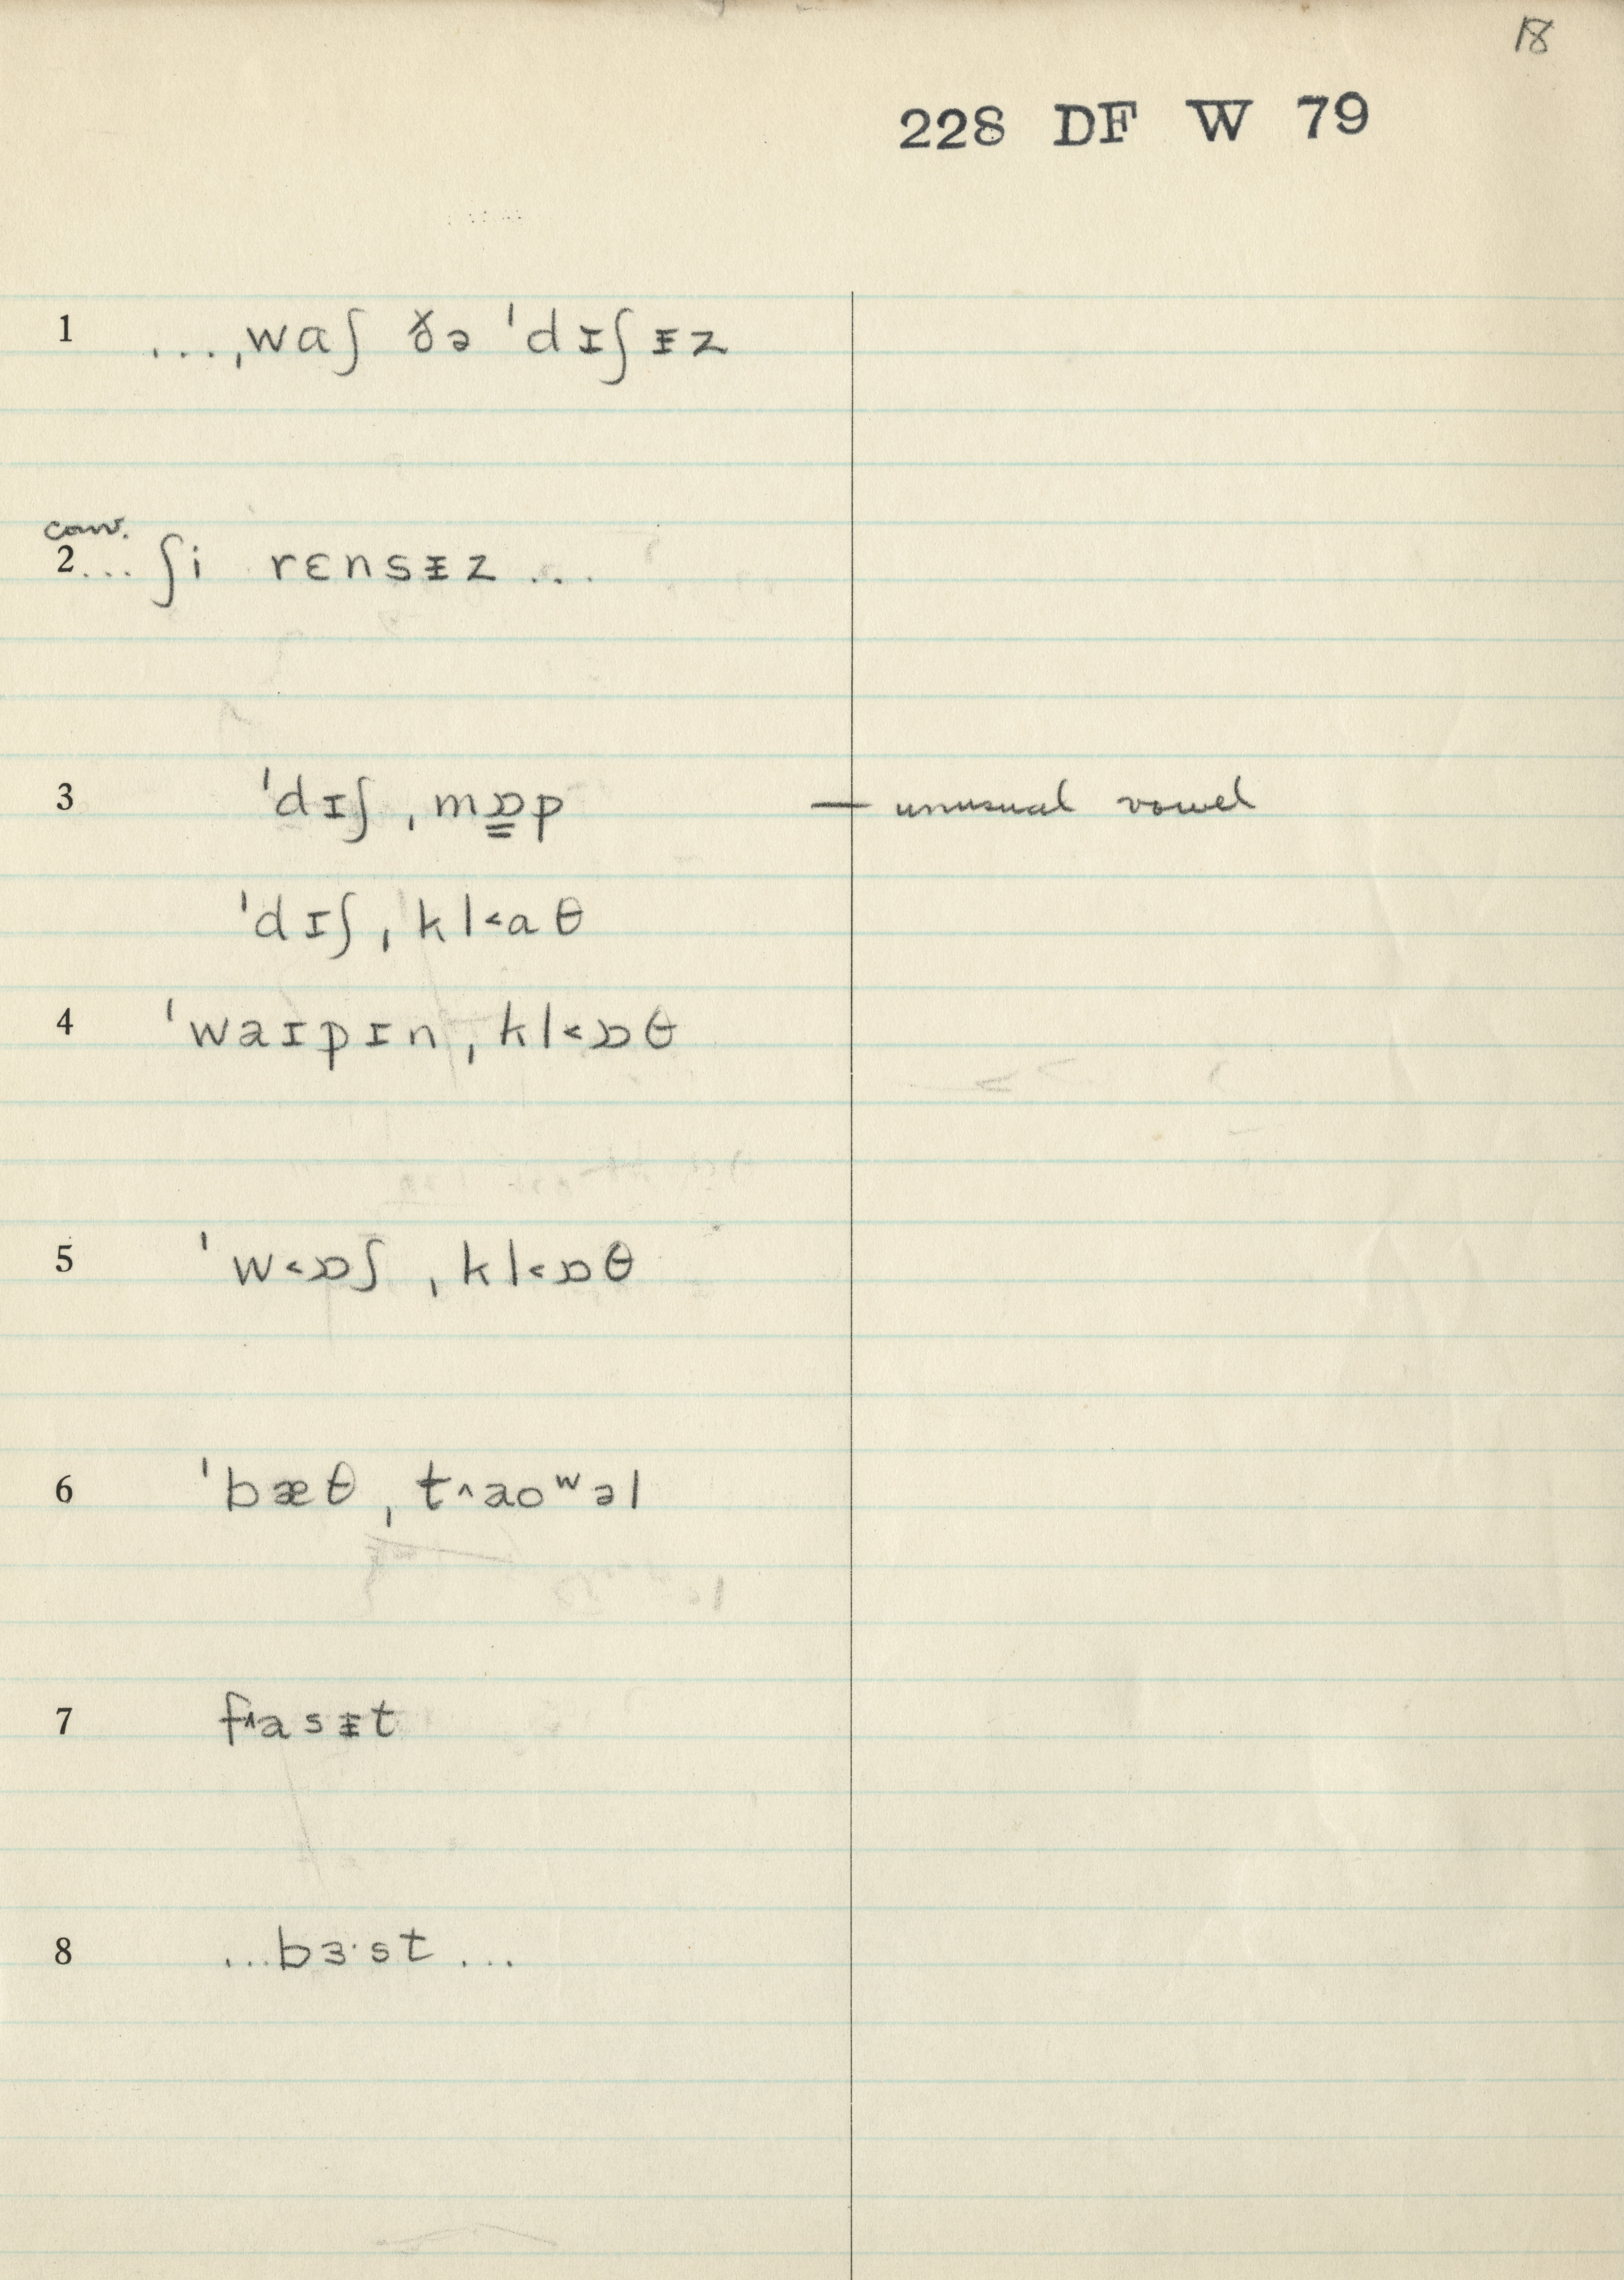 18
228 DF W 79
1 ...ˌwaʃ ðə ˈdɪʃᵻz
conv.
2... ʃi rɛnsᵻz ...
3 ˈdɪʃˌmɒ̳p — unusual vowel
ˈdɪʃˌkl˂aθ
4 ˈwaɪpɪnˌkl˂ɒθ
5 ˈw˂ɒʃˌkl˂ɒθ
6 ˈbæθˌt˄aoʷəl
7 f˄asᵻt
8 ...bɜ·st...